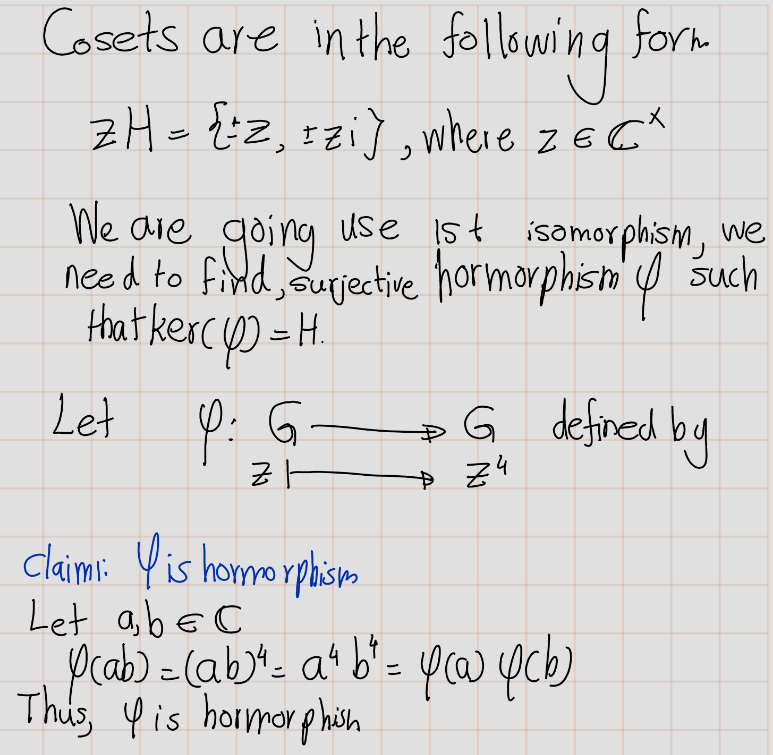 Cosets are in the following form
zH = {±z, ±zi}, where z ∈ ℂ^×
We are going use 1st isomorphism, we
need to find, surjective hormorphism φ such
that ker(φ) = H.
Let φ: G ⟶ G defined by
z ⟼ z⁴
Claim1: φ is hormorphism
Let a,b ∈ ℂ
φ(ab) = (ab)⁴ = a⁴ b⁴ = φ(a) φ(b)
Thus, φ is hormorphism